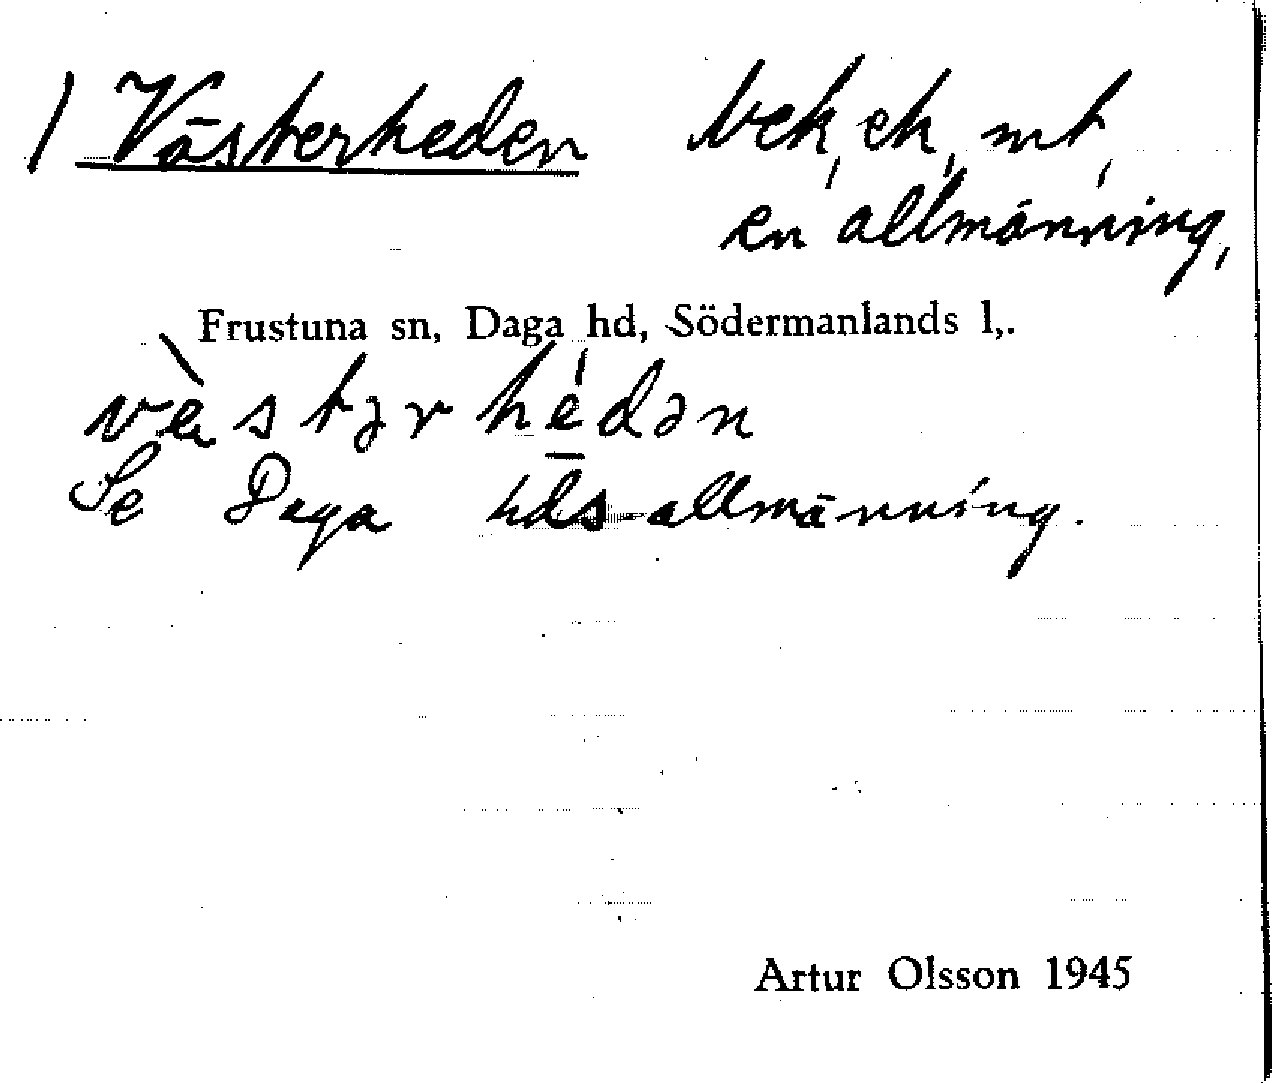 / Västerheden bek, ek, mt,
en allmänning,
Frustuna sn, Daga hd, Södermanlands l,.
vὲstərhédən
Se Daga hds-allmänning.
Artur Olsson 1945